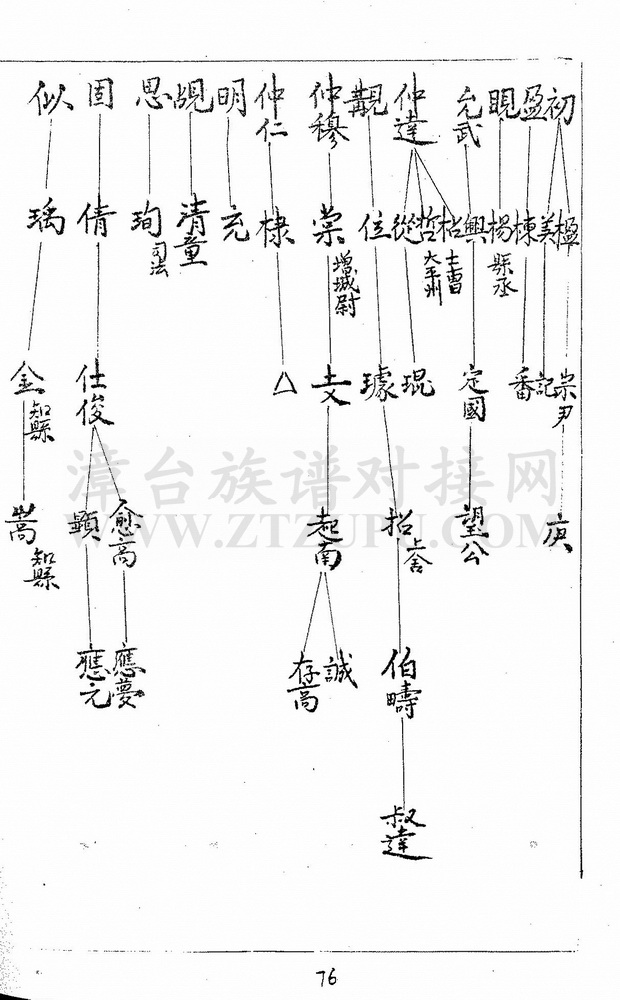 初
盈
睍
允武
仲達
觀
仲穆
仲仁
明
覘
思
固
似
楹
美
棟
楊 縣丞
興
枯 士曹
哲 大平州
從
位
棠 增城尉
棣
充
清童
珣 司法
倩
瑀
崇尹
記
番
定國
琨
璩
△
仕俊
金 知縣
庚
望公
招 上舍
起南
愈高
顕
嵩 知縣
伯疇
誠
存高
應夢
應元
叔達
漳台族谱对接网
WWW.ZTZUPU.COM
76